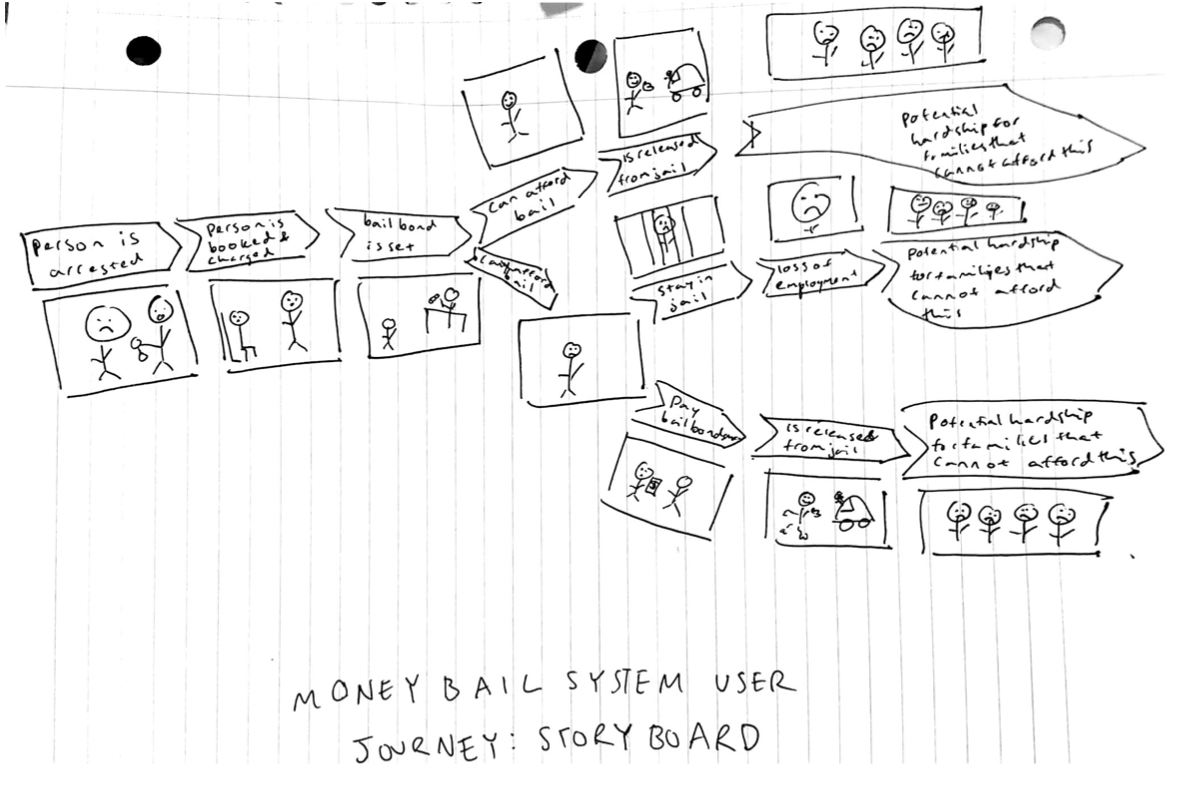 person is
arrested
person is
booked &
charged
bail bond
is set
can afford
bail
is released
from jail
potential
hardship for
families that
cannot afford this
can't afford
bail
stay in
jail
loss of
employment
potential hardship
for families that
cannot afford
this
Pay
is released
from jail
Potential hardship
for families that
cannot afford this
MONEY BAIL SYSTEM USER
JOURNEY: STORY BOARD